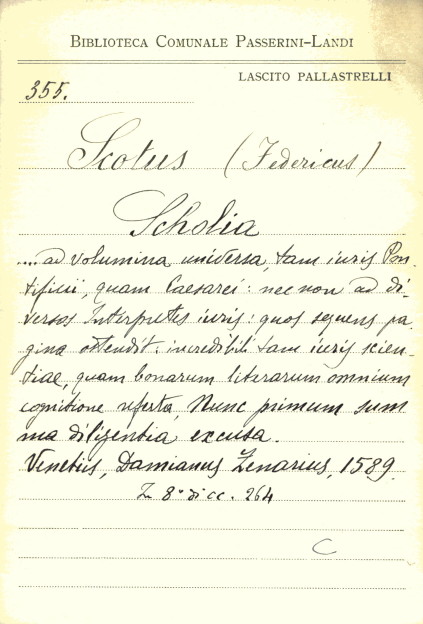 BIBLIOTECA COMUNALE PASSERINI-LANDI
LASCITO PALLASTRELLI
355.
Scotus (Federicus)
Scholia
.... ad volumina universa, tam iuris Pon-
tificii, quam Caesarei: nec non ad di-
versos Interpretes iuris: quos sequens pa-
gina ostendit: incredibili tam iuris scien-
tiae, quam bonarum literarum omnium
cognitione referta, Nunc primum sum
ma diligentia excusa.
Venetiis, Damianus Zenarius, 1589.
8° di cc. 264
C